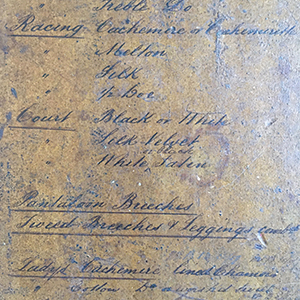 " Treble Do
Racing Cachemire or Cachemirette
" Melton
" Silk
" Doe
Court Black or White
" Silk Velvet
" White Satin
Pantaloon Breeches
Tweed Breeches & Leggings
Ladys Cachemire lined Chamois
" Cotton Do